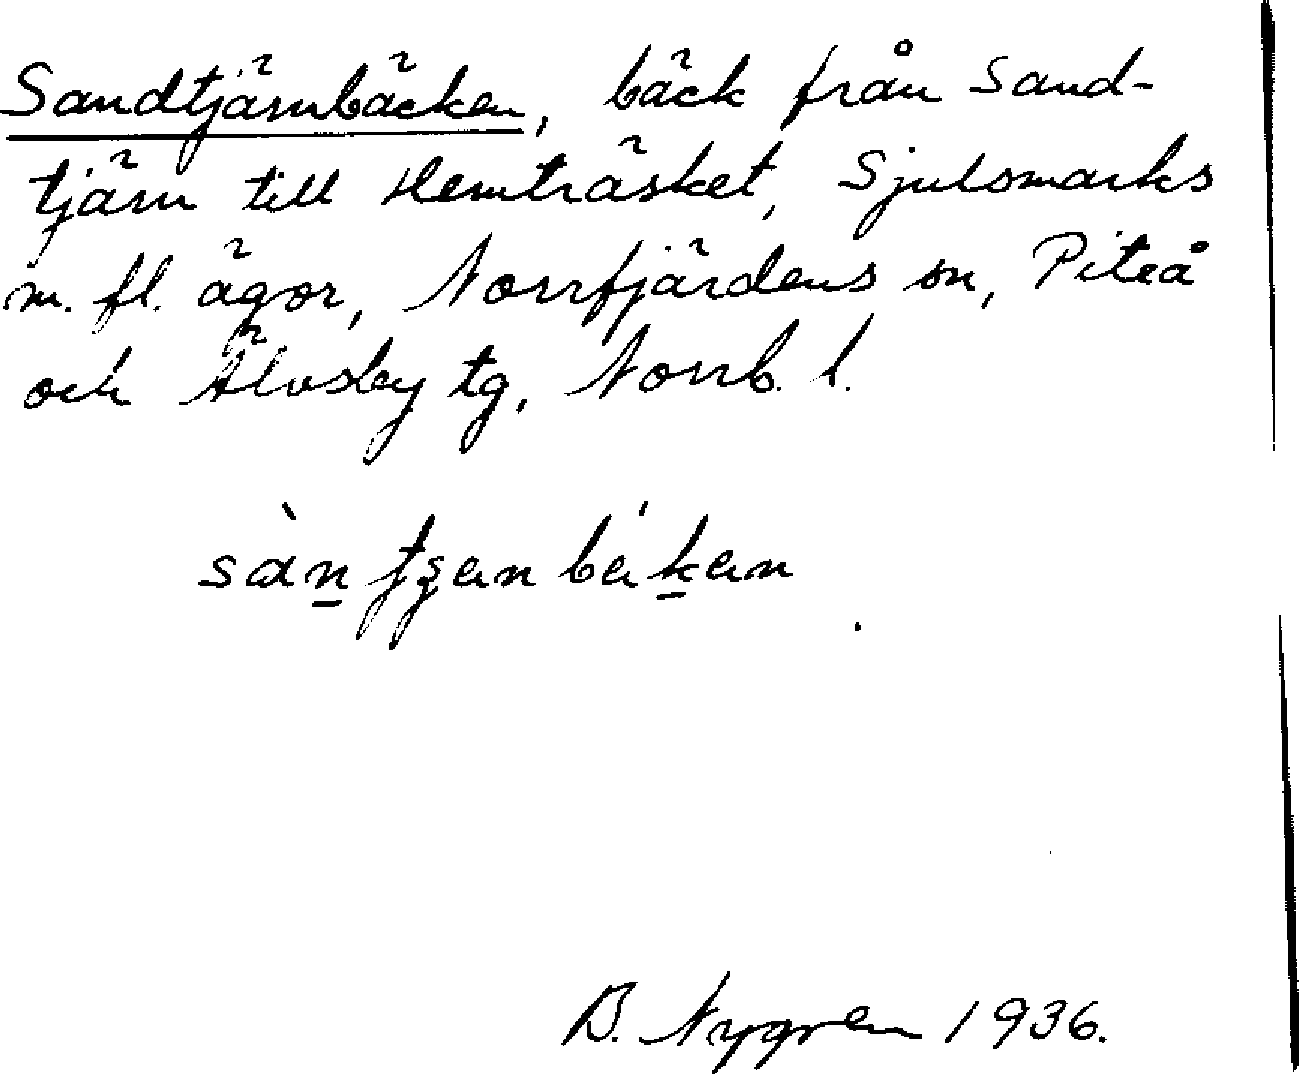 Sandtjärnbäcken, bäck från Sand-
tjärn till Hemträsket, Sjulsmarks
m. fl. ägor, Norrfjärdens sn, Piteå
och Älvsby tg, Norrb. l.
B. Nygren 1936.